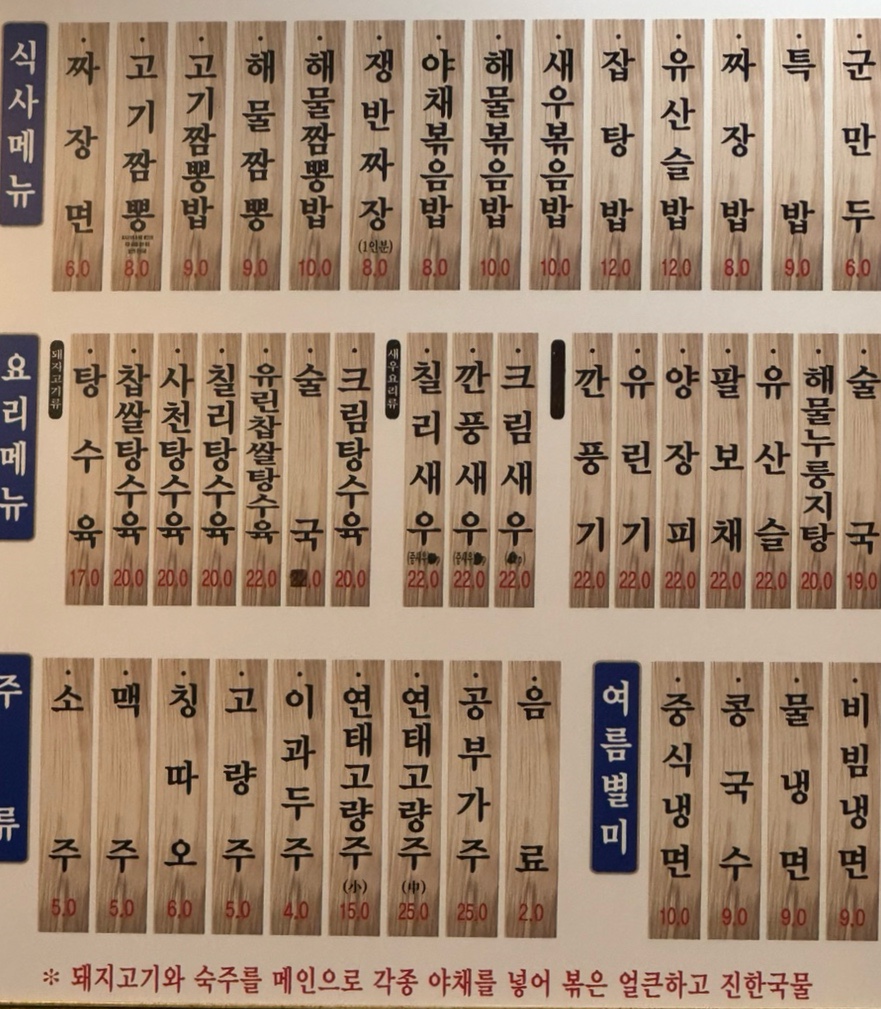 식사메뉴
짜장면 6.0
고기짬뽕 8.0
고기짬뽕밥 9.0
해물짬뽕 9.0
해물짬뽕밥 10.0
쟁반짜장 (1인분) 8.0
야채볶음밥 8.0
해물볶음밥 10.0
새우볶음밥 10.0
잡탕밥 12.0
유산슬밥 12.0
짜장밥 8.0
특밥 9.0
군만두 6.0
요리메뉴
돼지고기류
탕수육 17.0
찹쌀탕수육 20.0
사천탕수육 20.0
칠리탕수육 20.0
유린찹쌀탕수육 22.0
술국
크림탕수육 20.0
새우요리류
칠리새우 22.0
깐풍새우 22.0
크림새우 22.0
깐풍기 22.0
유린기 22.0
양장피 22.0
팔보채 22.0
유산슬 22.0
해물누룽지탕 20.0
술국 19.0
주류
소주 5.0
맥주 5.0
칭따오 6.0
고량주 5.0
이과두주 4.0
연태고량주 (小) 15.0
연태고량주 (中) 25.0
공부가주 25.0
음료 2.0
여름별미
중식냉면 10.0
콩국수 9.0
물냉면 9.0
비빔냉면 9.0
※ 돼지고기와 숙주를 메인으로 각종 야채를 넣어 볶은 얼큰하고 진한국물